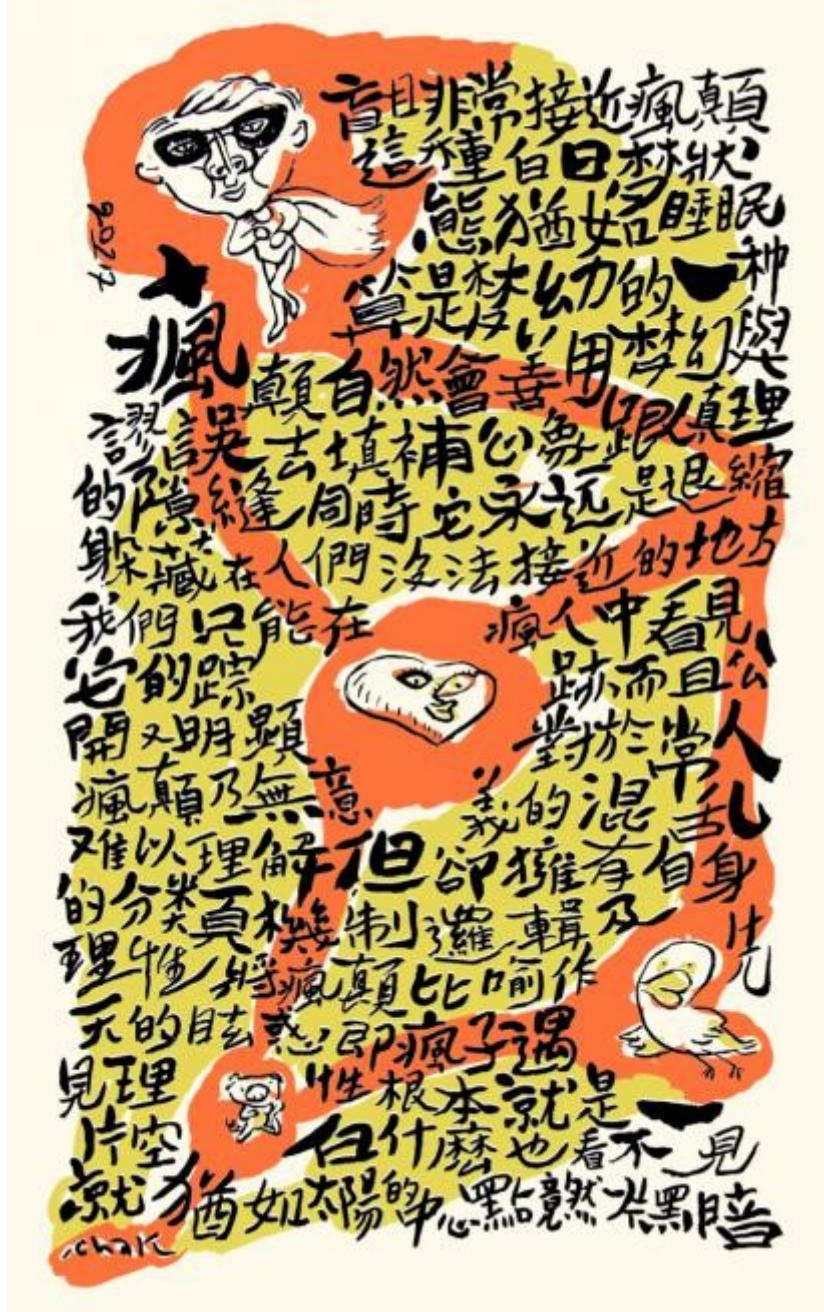 盲目非常接近瘋顛
這種白日夢狀
態猶如睡眠
算是夢幼的一种
瘋顛自然會善用夢幻與
謬誤去填補公象跟人真理
的隙縫同時它永远是退縮
躲藏在人們沒法接近的地方
我們只能在瘋人中看見
它的踪跡而且公
開又明顯對於常人
瘋顛乃無意義的混乱
难以理解但卻擁有自身
的分类頁機制邏輯及
理性將瘋顛比喻作先
天的眩惑即瘋子遇
見理性根本就是一
片空白什麼也看不見
就猶如太陽的中心點竟然一片黑暗
chak
2017